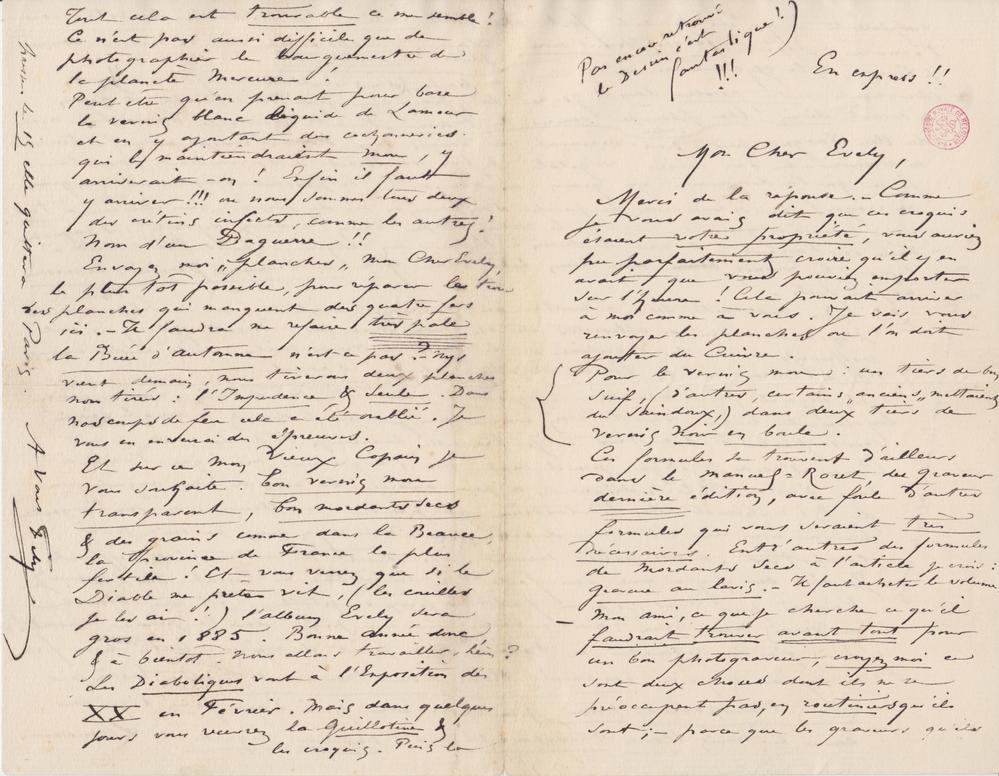 (Pas encore retrouvé
le Dessin c'est
fantastique!)
!!!
En express !!
Mon Cher Evely,
Merci de la réponse. – Comme
je vous avais dit que ces croquis
étaient votre propriété, vous auriez
pu parfaitement croire qu'il y en
avait, que vous pouviez emporter
sur l'heure ! Cela pouvait arriver
à moi comme à vous. Je vais vous
renvoyer les planches où l'on doit
ajouter du Cuivre.
Pour le vernis mou : un tiers de
suif, (d'autres, certains "anciens", mettaient
du Saindoux,) dans deux tiers de
vernis noir en boule.
Ces formules se trouvent d'ailleurs
dans le manuel-Roret, du graveur
dernière édition, avec foule d'autres
formules qui vous seraient très
nécessaires. Entr'autres des formules
de Mordants secs à l'article je crois :
Gravure au lavis. – Il faut acheter le volume
Mon ami, ce que je cherche ce qu'il
faudrait trouver avant tout pour
un bon photograveur, croyez moi ce
sont deux choses dont ils ne se
préoccupent pas, en routiniers qu'ils
sont ; – parce que les graveurs qu'ils
Tout cela est trouvable ce me semble !
Ce n'est pas aussi difficile que de
photographier le bourgmestre de
la planète Mercure !
Peut être qu'en prenant pour base
le vernis blanc liquide de Lamour
et en y ajoutant des cochonneries
qui le maintiendraient mou, y
arriverait-on ! Enfin il faut
y arriver !!! ou nous sommes tous deux
des crétins infects, comme les autres !
Nom d'un Daguerre !!
Envoyez moi "planches" mon Cher Evely,
le plus tôt possible, pour réparer les trous
des planches qui manquent des quatre fers
ici. – Il faudra me refaire très pâle
la Buée d'automne n'est-ce pas ? Nys
vient demain, nous tirerons deux planches
non tirées : l'Impudence & Seule. Dans
nos coups de feu cela a été oublié. Je
vous en enverrai des épreuves.
Et sur ce mon Vieux Copain je
vous souhaite. bon vernis mou
transparent, bon mordants secs
& des grains comme dans la Beauce,
la province de France la plus
fertile ! Et vous verrez que si le
Diable me prête vit, (les couilles
je les ai !) l'album Evely sera
gros en 1885. Bonne année donc
& à bientôt. Nous allons travailler, hein ?
Les Diaboliques vont à l'Exposition des
XX en Février. Mais dans quelques
jours vous recevrez la Guillotine &
les croquis. Puis la
le 15 elle quittera
Paris.
A vous
Fély